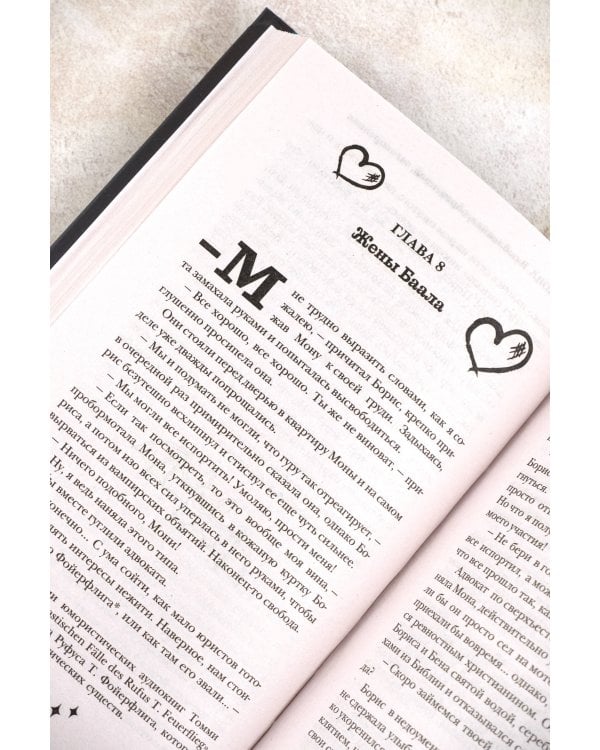 ГЛАВА 8
Жены Баала
–М
не трудно выразить словами, как я со-
жалею, – причитал Борис, крепко при-
жав Мону к своей груди. Задыхаясь,
та замахала руками и попыталась высвободиться.
– Все хорошо, все хорошо. Ты же не виноват, – при-
глушенно просипела она.
Они стояли перед дверью в квартиру Моны и на самом
деле уже дважды попрощались.
– Мы и подумать не могли, что гуру так отреагирует, –
в очередной раз примирительно сказала она, однако Бо-
рис безутешно всхлипнул и стиснул ее еще чуть сильнее.
– Мы могли все испортить! Умоляю, прости меня!
– Если так посмотреть, то это вообще моя вина, –
пробормотала Мона, уткнувшись в кожаную куртку Бо-
риса, а потом изо всех сил уперлась в него руками, чтобы
вырваться из вампирских объятий. Наконец-то свобода.
– Ничего подобного, Мони!
Ну, я ведь наняла этого типа.
ы вместе гуглили адвоката.
онечно... С ума сойти, как мало юристов гото-
лять интересы нежити. Наверное, нам стои-
о Фойерфлига*, или как там его звали...
и юмористических аудиокниг Томми
istischen Fälle des Rufus T. Feuerflieg
а Руфуса Т. Фойерфлига, котор
ических существ.
Борис
пнуться
просто от
Но что я пол
моего участия!
– Не бери в го
все испортил, а мож
что все прошло так, ка
– Адвокат по сверхъест
няла Мона, действительно у
ли бы он просто сел на мот
приехали бы вовремя... однако
ся ревностным христианином. О
Бориса и Бена святой водой, сереб
хами из Библии и отказывался
– Скоро займемся твоей
да?
Борис в недоуме
не сдержала улыб
ко укоренился
клятием,
свои с